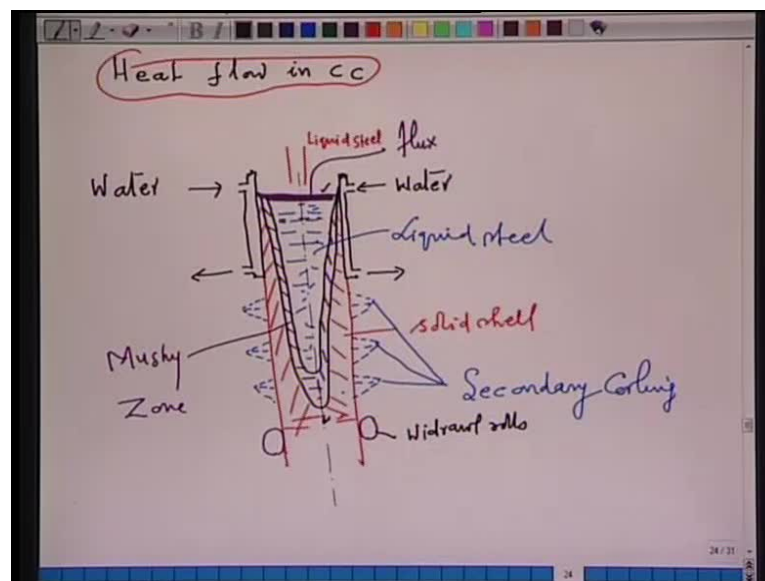 B I
Heat flow in CC
Liquid steel
flux
Water
Water
Liquid steel
Solid shell
Mushy
Zone
Secondary Cooling
Widrawl rolls
24/31
24